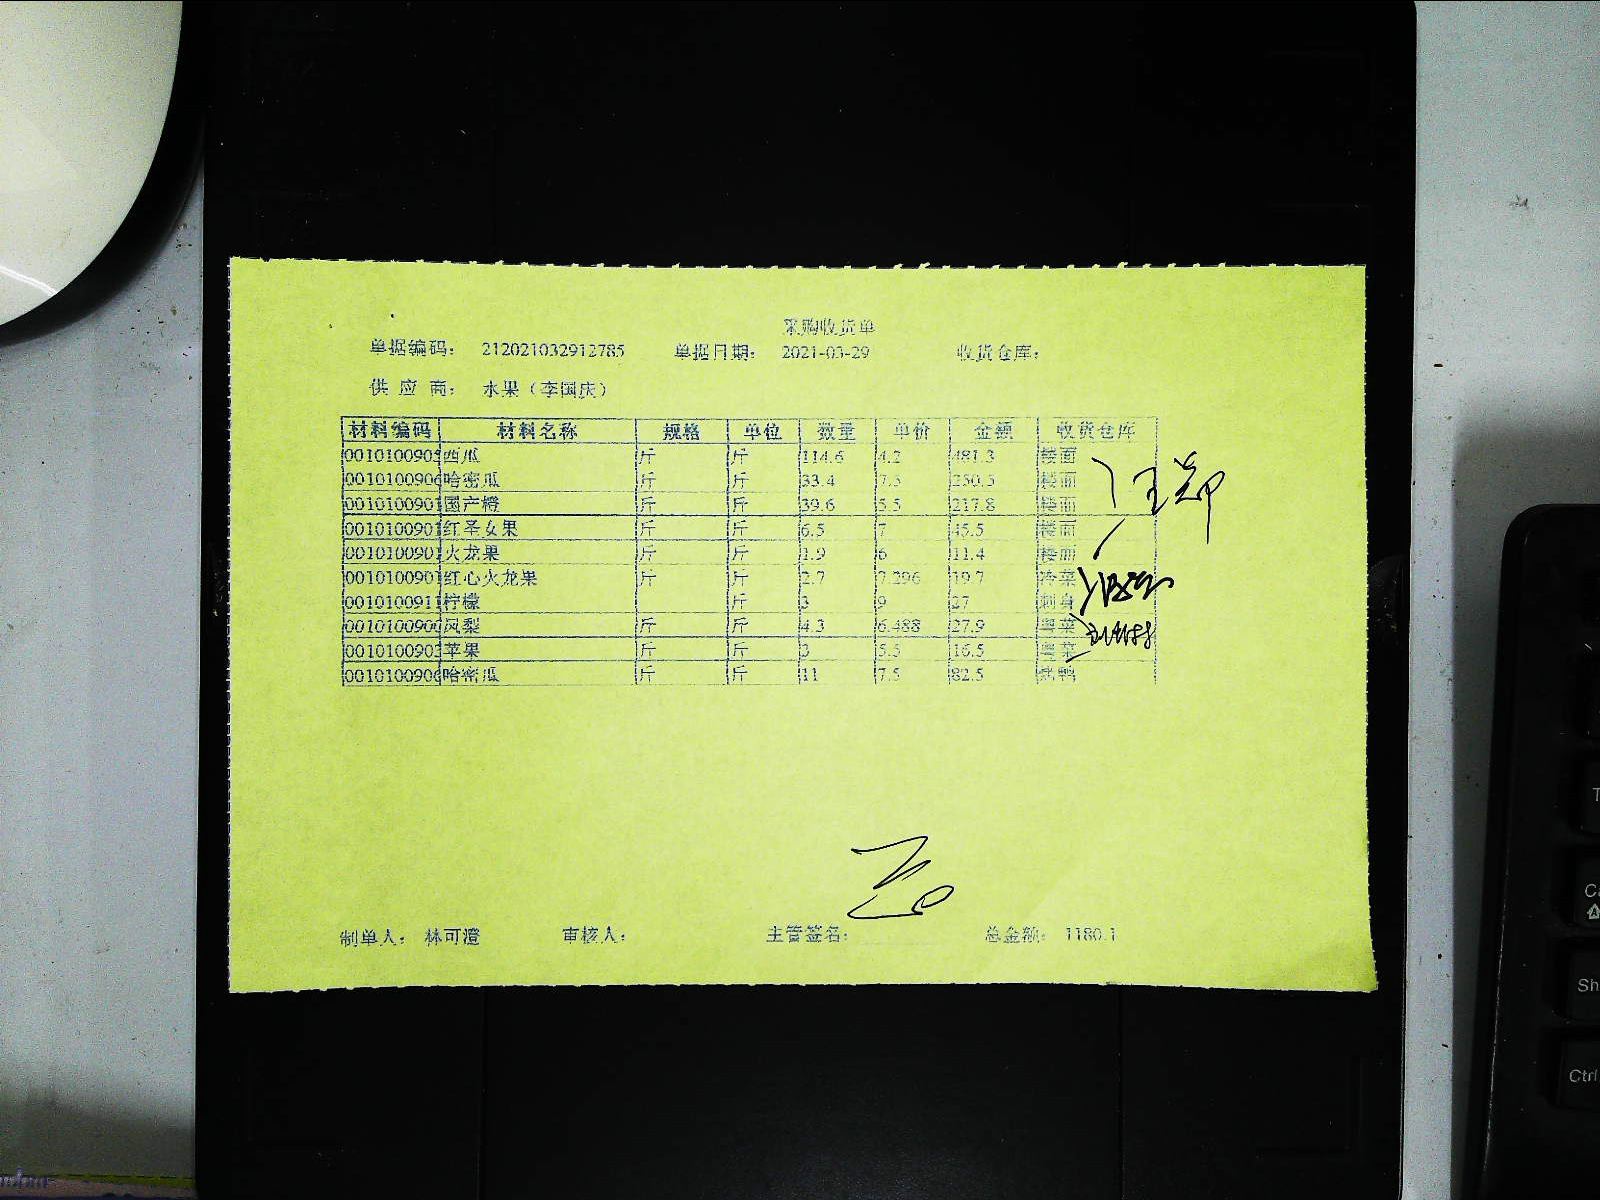 采购收货单
单据编码: 212021032912785 单据日期: 2021-03-29 收货仓库:
供应商: 水果(李国庆)
材料编码 材料名称 规格 单位 数量 单价 金额 收货仓库
001010090 西瓜 斤 斤 114.6 4.2 481.3 楼面
001010090 哈密瓜 斤 斤 33.4 7.5 250.5 楼面
001010090 国产橙 斤 斤 39.6 5.5 217.8 楼面
001010090 红圣女果 斤 斤 6.5 7 45.5 楼面
001010090 火龙果 斤 斤 1.9 6 11.4 楼面
001010090 红心火龙果 斤 斤 2.7 7.296 19.7 冷菜
001010091 柠檬 斤 3 9 27 刺身
001010090 凤梨 斤 斤 4.3 6.488 27.9 粤菜
001010090 苹果 斤 斤 3 5.5 16.5 粤菜
001010090 哈密瓜 斤 斤 11 7.5 82.5 烤鸭
制单人: 林可澄 审核人: 主管签名: 总金额: 1180.1
Ctrl